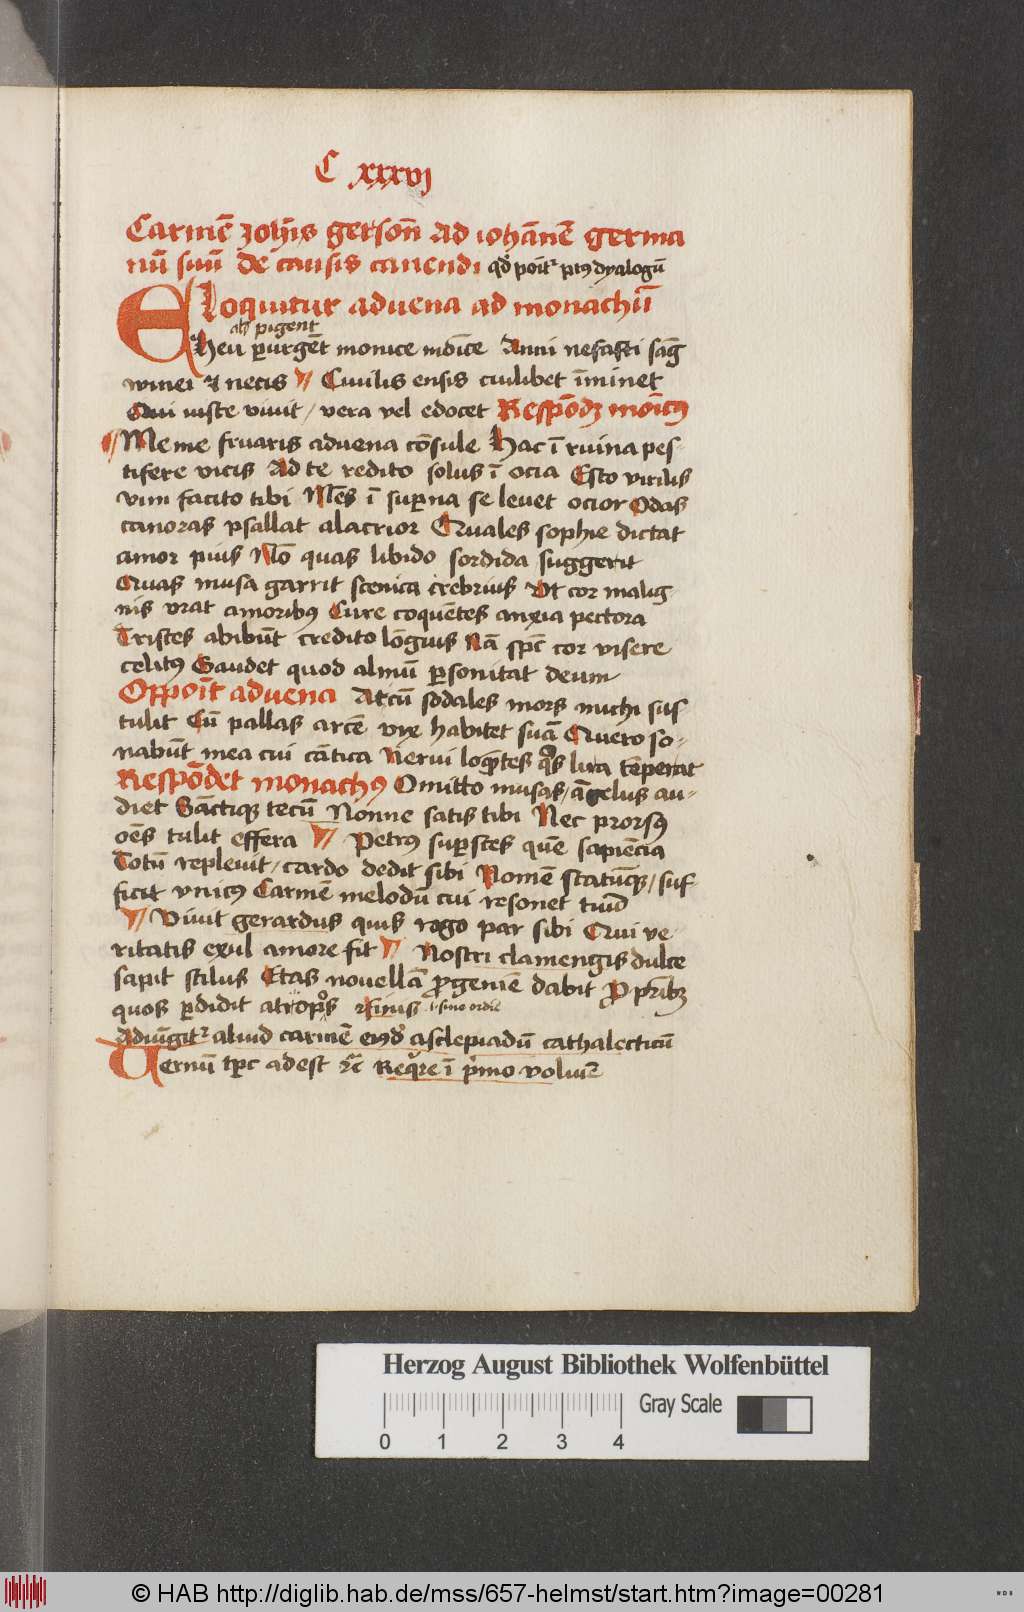 C xxxvj
Carmē Joh̄is gersoñ ad ioha͞nē germa
nū suū de causis canendi q̄d poīt͛ pͥus dyalogū
Eloquitur aduena ad monachū
al' pigent
heu p̱urgēt monice mōice Anni nefasti sāg
winei ⁊ necis Ciuilis ensis ciuilibet īminet
Qui iuste viuit / vera vel edocet Respōdꝫ mōicꝰ
Me me fruaris aduena cōsule Hac ī ruina pes-
tifere vicis Ad te redito solus ī ocia Esto virilis
vim facito tibi Mēs ī sup̱na se leuet ocior Odas
canoras psallat alacrior Quales sophie dictat
amor pius Nō quas libido sordida suggerit
Quas musa garrit scenica crebrius Vt cor malig
nis vrat amoribꝰ Cure coquētes anxia pectora
Tristes abibūt credito lōgius Nā sp̄c cor visere
celitꝰ Gaudet quod almū p̱sonitat deum
Oppoīt aduena Atcū sodales mors michi sus
tulit Cū pallas arcē vix habitet suā Quero so-
nabūt mea cui cātica Nerui loq̄ntes q̊s lira tēperat
Respōdet monachꝰ Omitto musas / āgelus au-
diet Sāctiqꝫ tecū Nonne satis tibi Nec prorsꝰ
oēs tulit effera Petrꝰ sup̱stes quē sapiēcia
Totū repleuit / cardo dedit sibi Nomē statūqꝫ / suf
ficit vnicꝰ Carmē melodū cui resonet tuū
Viuit gerardus quis rogo par sibi Qui ve-
ritatis exul amore fit Nostri clamengis dulce
sapit stilus Etas nouellā ꝓgeniē dabit Pro pr̄ibꝫ
quos p̱didit atropos Finis s̄ sine ordīe
Adiūgit͛ aliud carmē eiꝰd̄ asclepiadū cathalecticū
Vernū tp̄c adest ⁊c̄ Reqͥre ī pͥmo volūīe
Herzog August Bibliothek Wolfenbüttel
Gray Scale
0 1 2 3 4
© HAB http://diglib.hab.de/mss/657-helmst/start.htm?image=00281